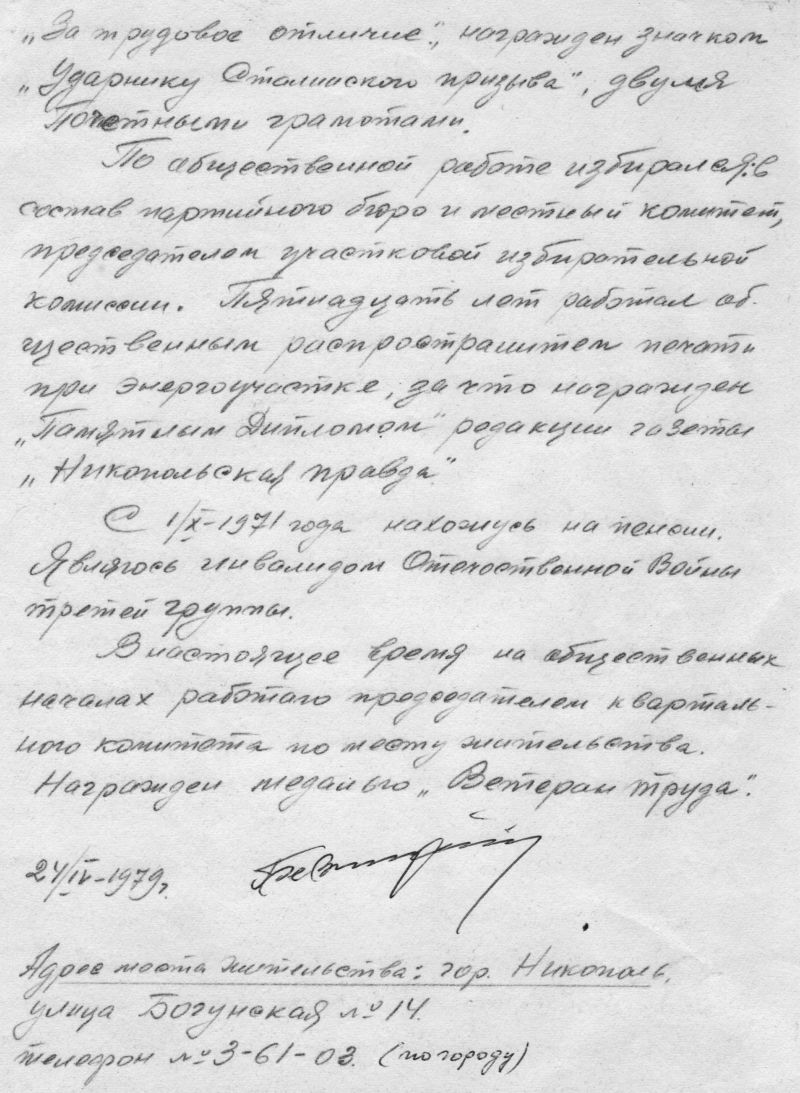 „За трудовое отличие“, награжден значком
„Ударнику Сталинского призыва“, двумя
Почетными грамотами.
По общественной работе избирался: в
состав партийного бюро и местный комитет,
председателем участковой избирательной
комиссии. Пятнадцать лет работал об-
щественным распространителем печати
при энергоучастке, за что награжден
„Памятным Дипломом“ редакции газеты
„Никопольская правда“
С 1/X-1971 года нахожусь на пенсии.
Являюсь инвалидом Отечественной Войны
третей группы.
В настоящее время на общественных
началах работаю председателем кварталь-
ного комитета по месту жительства.
Награжден медалью „Ветеран труда“.
24/IV-1979г.
Адрес места жительства: гор. Никополь,
улица Богунская № 14.
телефон № 3-61-03. (по городу)